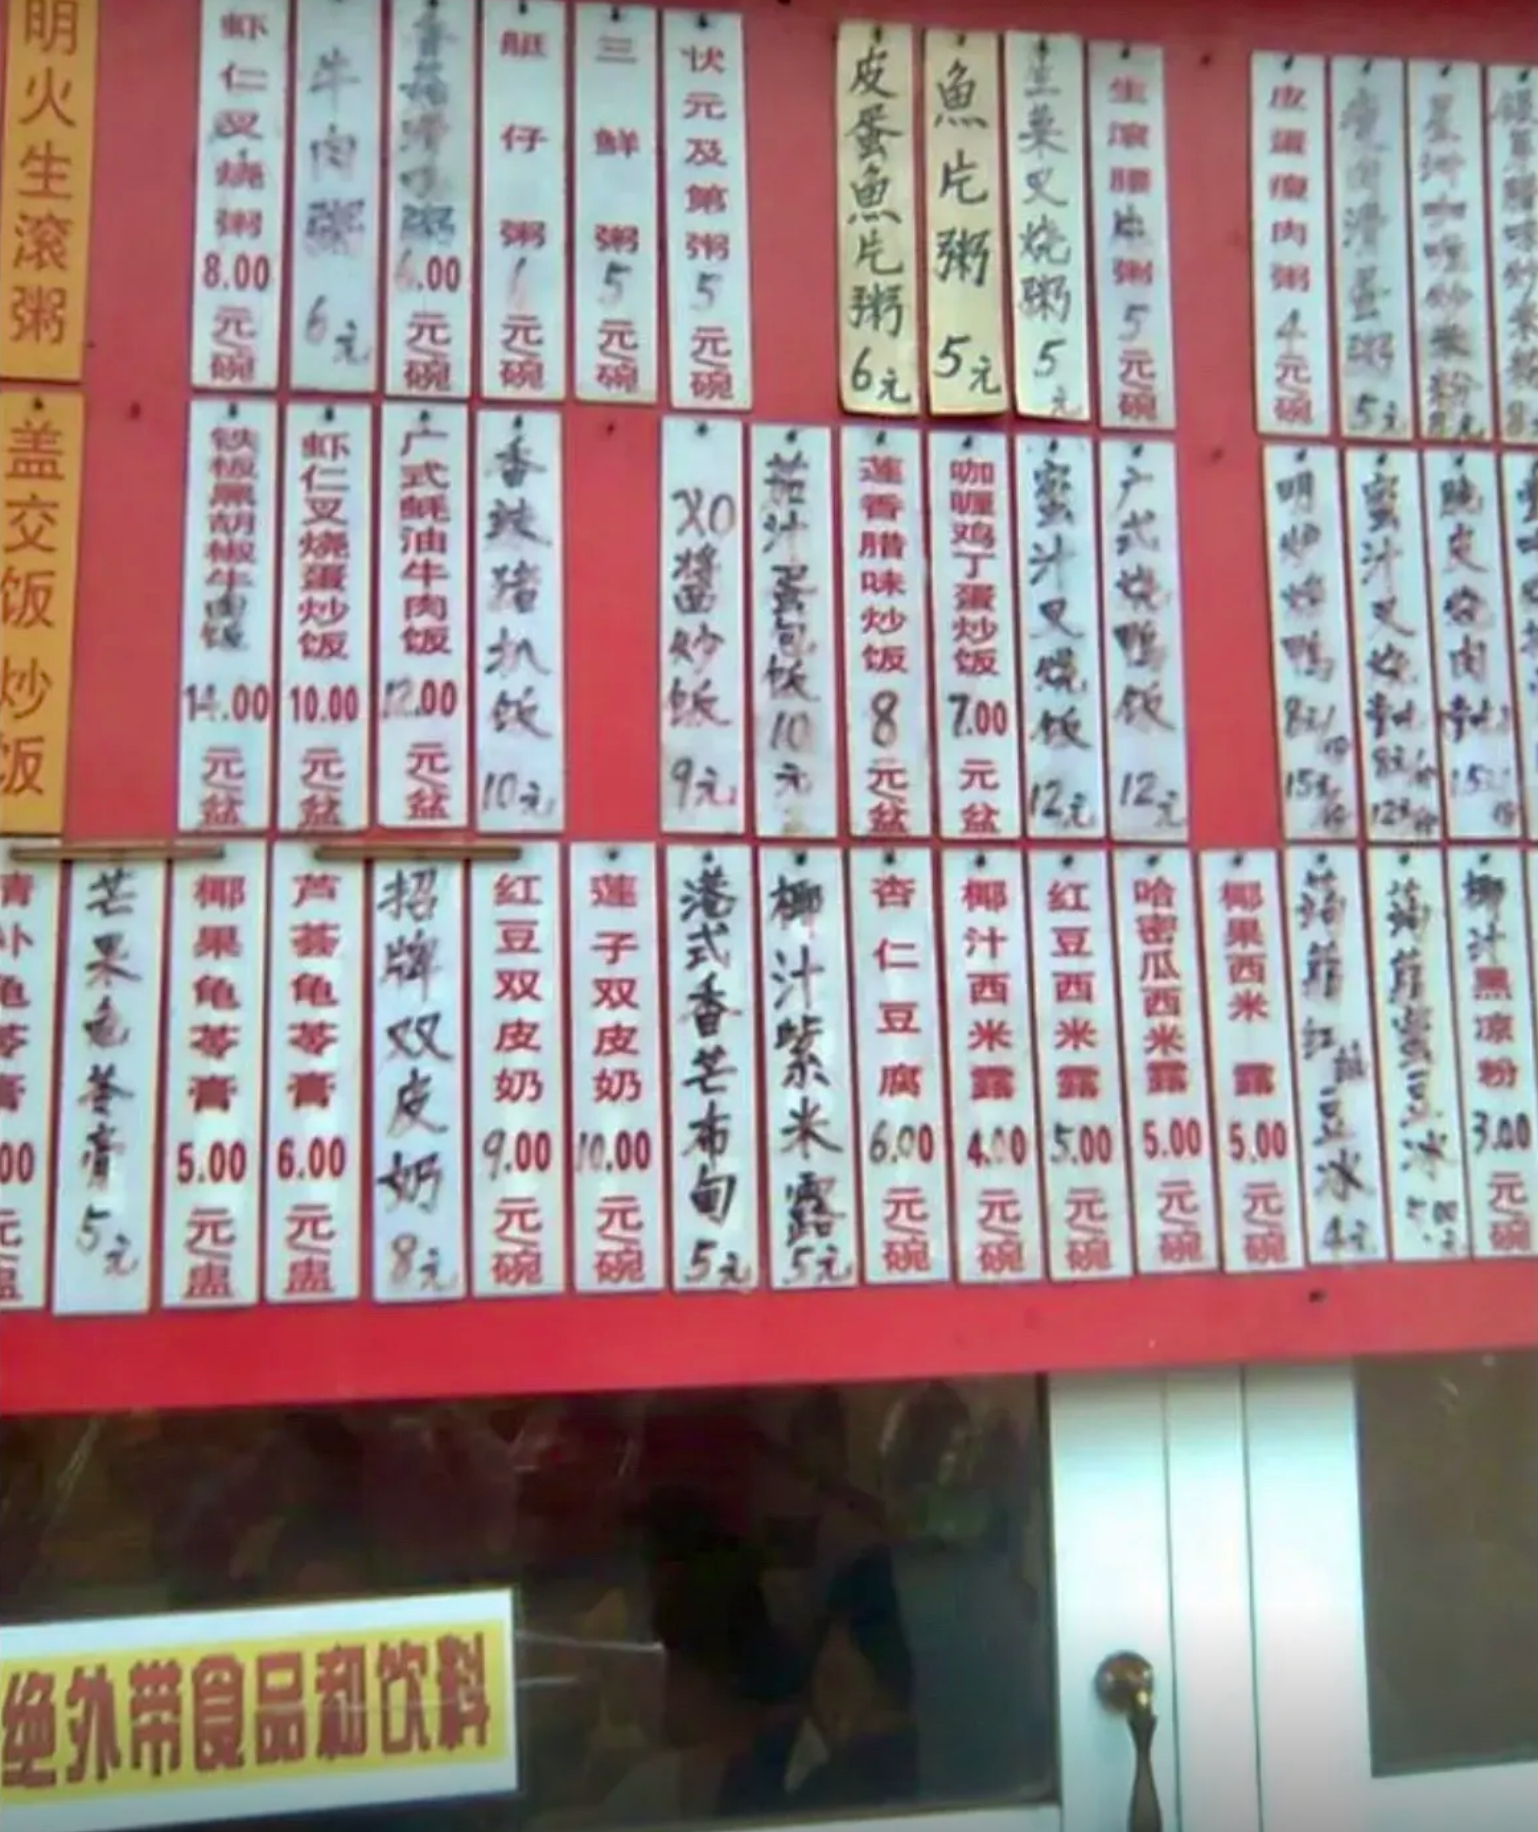 明火生滚粥
虾仁叉烧粥 8.00 元/碗
牛肉粥 6元
粥 6.00 元/碗
艇仔粥 元/碗
三鲜粥 5 元/碗
状元及第粥 5 元/碗
皮蛋魚片粥 6元
魚片粥 5元
生菜叉烧粥 5元
生滚腰片粥 5 元/碗
皮蛋瘦肉粥 4 元/碗
瘦肉滑蛋粥 5元
星洲咖喱炒米粉
盖交饭 炒饭
铁板黑胡椒牛肉饭 14.00 元/盆
虾仁叉烧蛋炒饭 10.00 元/盆
广式蚝油牛肉饭 12.00 元/盆
香豉猪扒饭 10元
XO醬炒饭 9元
茄汁蛋包饭 10元
莲香腊味炒饭 8 元/盆
咖喱鸡丁蛋炒饭 7.00 元/盆
蜜汁叉烧饭 12元
广式烧鸭饭 12元
明炉烧鸭
蜜汁叉烧
脆皮烧肉
芒果龟苓膏 5元
椰果龟苓膏 5.00 元/盅
芦荟龟苓膏 6.00 元/盅
招牌双皮奶 8元
红豆双皮奶 9.00 元/碗
莲子双皮奶 10.00 元/碗
港式香芒布甸 5元
椰汁紫米露 5元
杏仁豆腐 6.00 元/碗
椰汁西米露 4.00 元/碗
红豆西米露 5.00 元/碗
哈密瓜西米露 5.00 元/碗
椰果西米露 5.00 元/碗
红豆冰 4元
豆冰 5.00元
椰汁黑凉粉 3.00 元/碗
绝外带食品和饮料